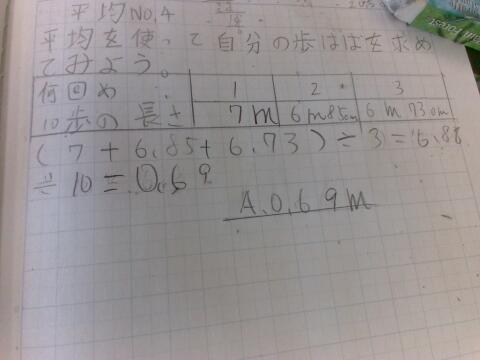 平均No.4
平均を使って自分の歩はばを求め
てみよう。
何回め 1 2 3
10歩の長さ 7m 6m85cm 6m73cm
(7+6.85+6.73)÷3=6.86
÷10=0.69
A.0.69m